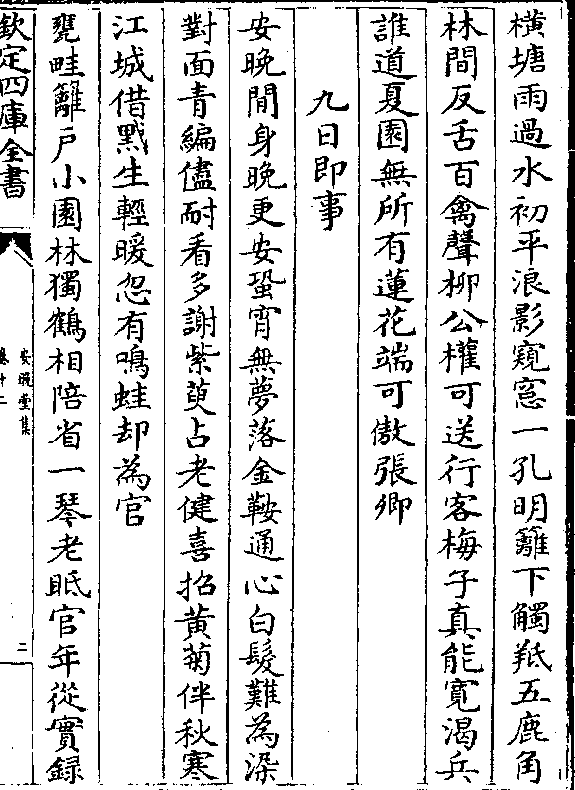 橫塘雨過水初平浪影窺窓一孔明籬下觸羝五鹿角
林間反舌百禽聲柳公權可送行客梅子真能寛渴兵
誰道夏園無所有蓮花端可傲張卿
九日即事
安晩閒身晩更安蛩宵無夢落金鞍通心白髮難為染
對面青編儘耐看多謝紫萸占老健喜招黄菊伴秋寒
江城借煗生輕暖忽有鳴蛙却為官
甕畦籬戸小園林獨鶴相陪省一琴老眂官年從實録
欽定四庫全書
安晚堂集
卷十二
三